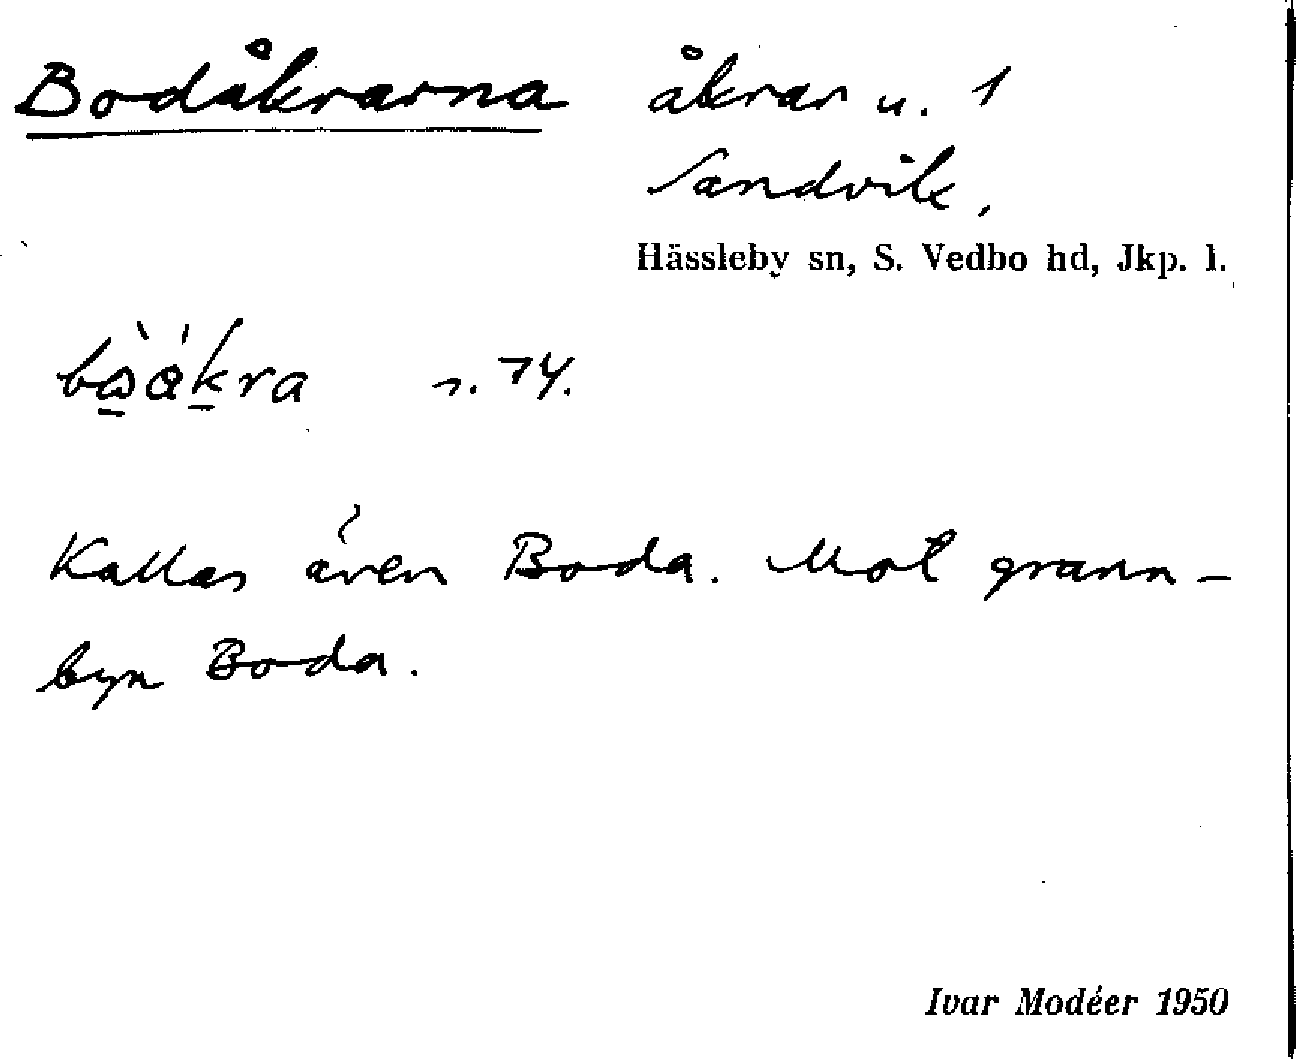 Bodåkrarna åkrar u. 1
Sandvik,
Hässleby sn, S. Vedbo hd, Jkp. l.
r. 74.
Kallas även Boda. Mot grann-
byn Boda.
Ivar Modéer 1950